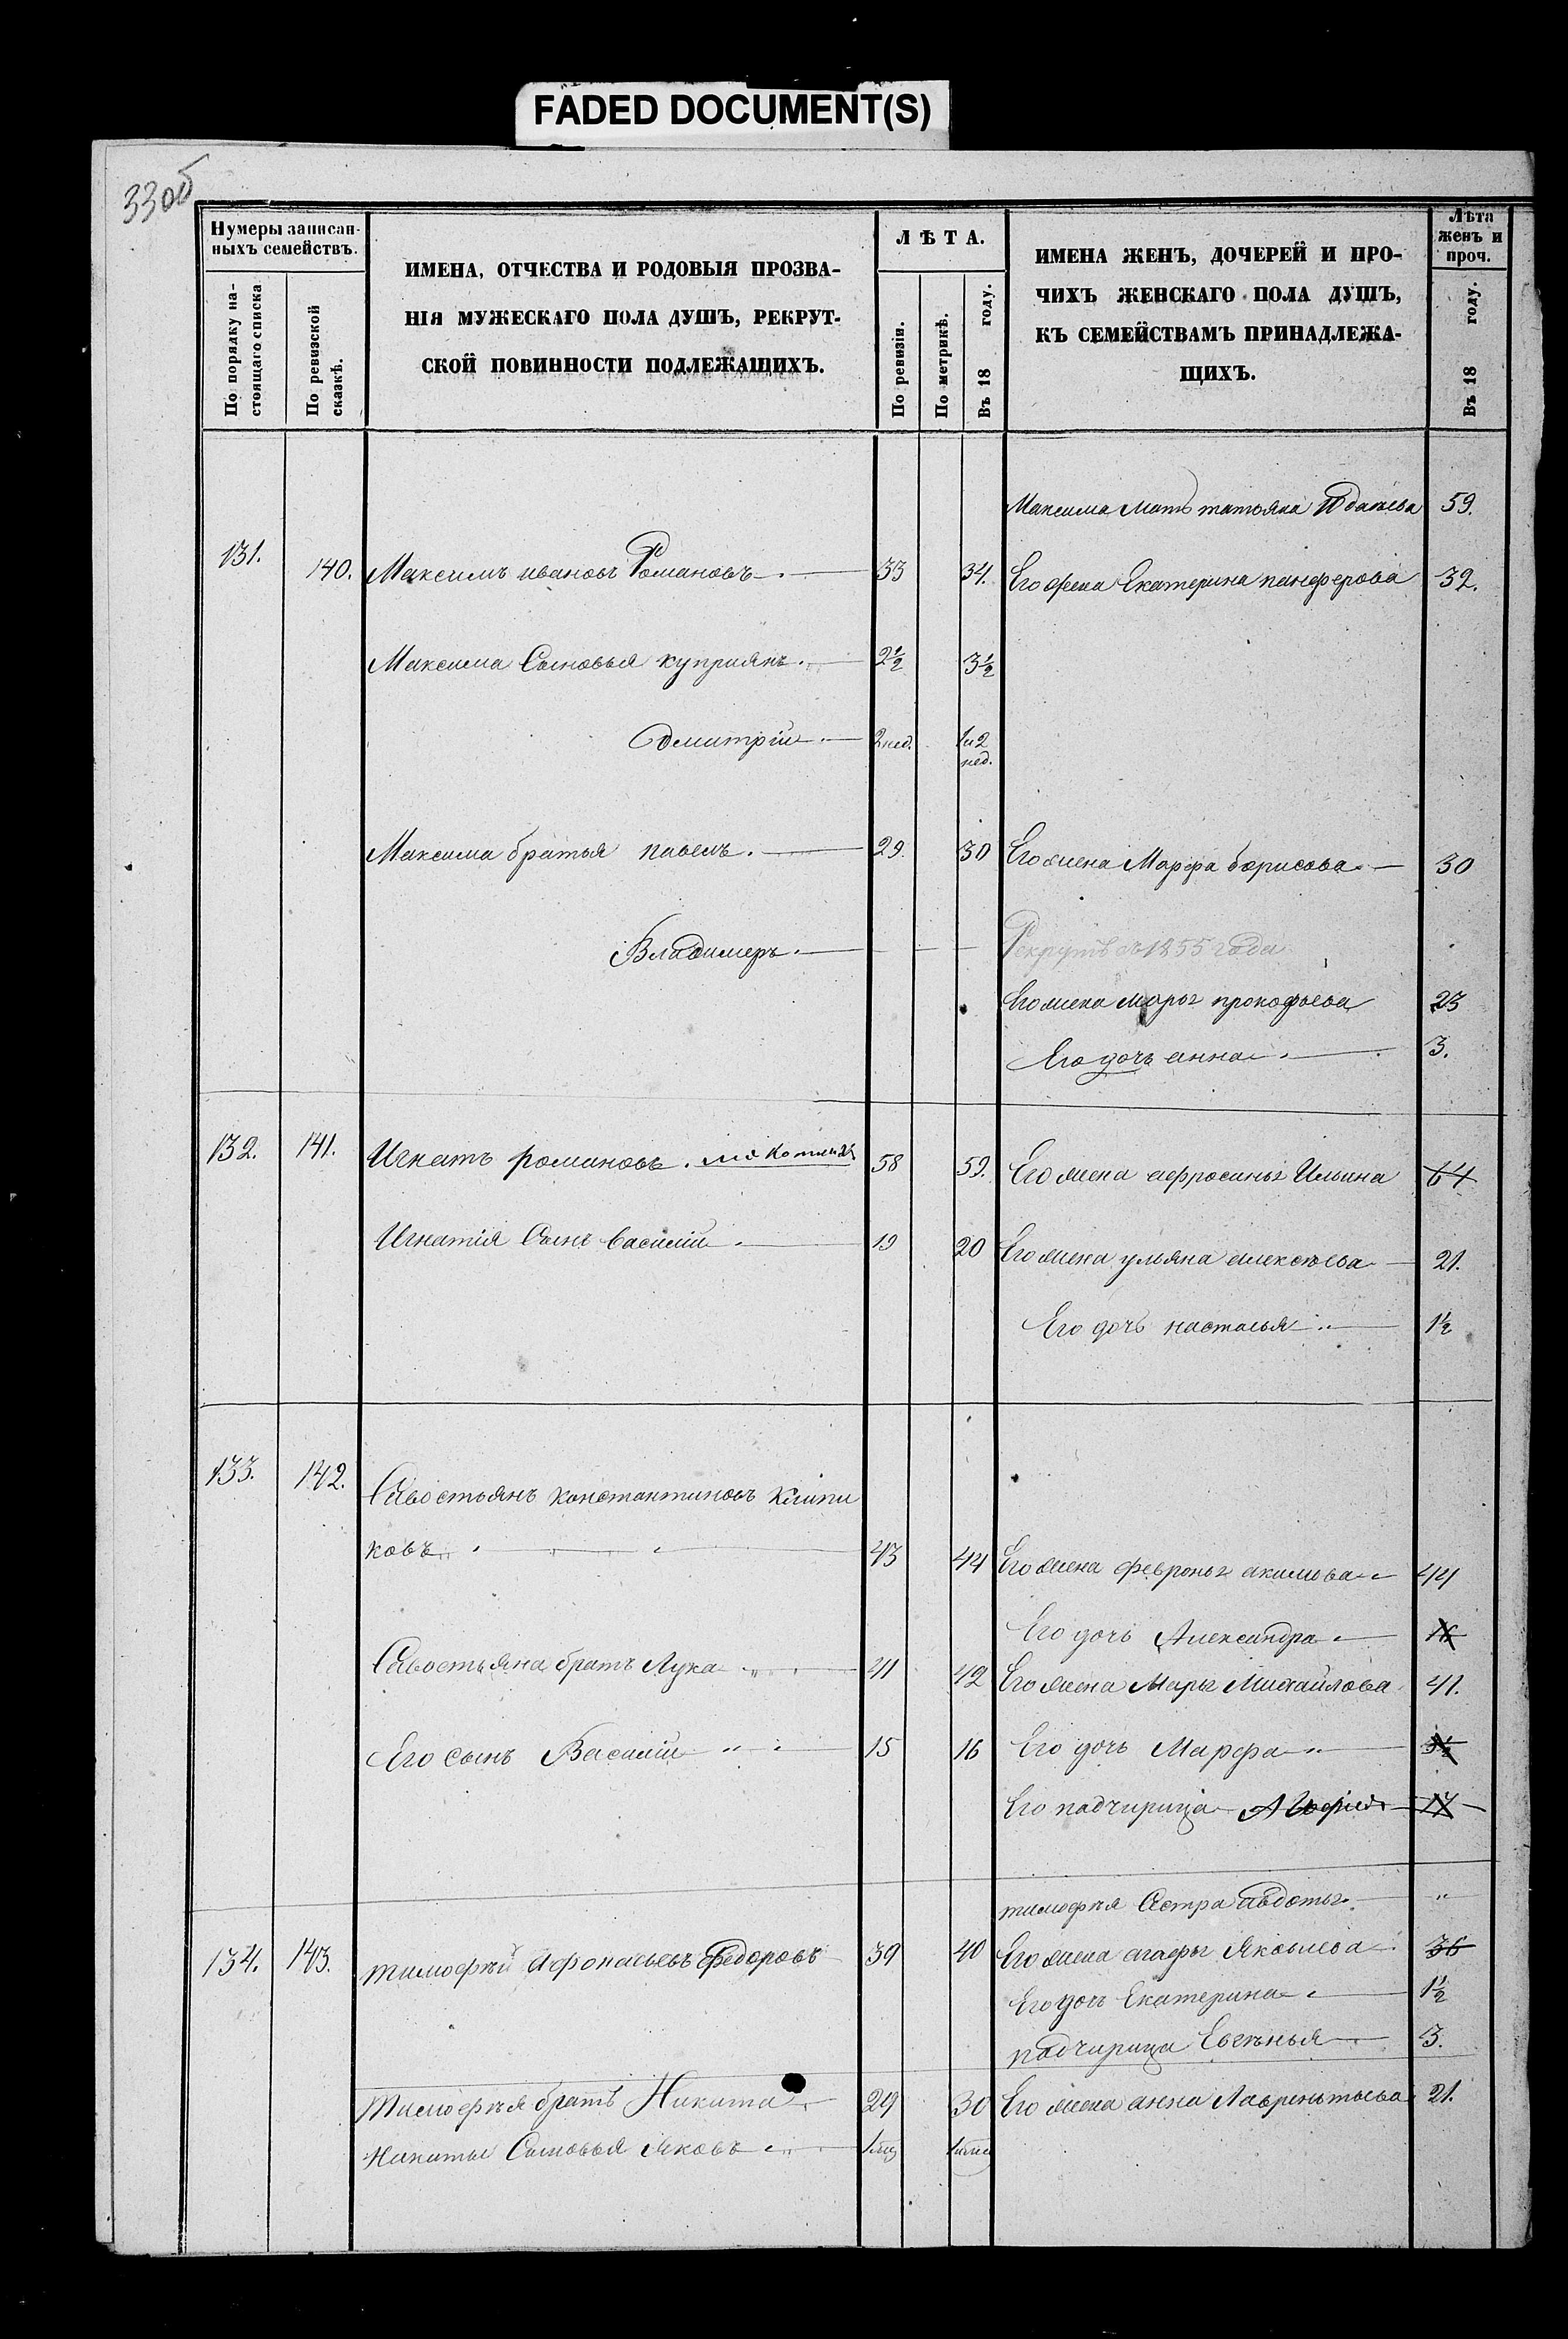 FADED DOCUMENT(S)
33об
Нумеры записан-
ныхъ семействъ.
По порядку на-
стоящаго списка
По ревизской
сказкѣ.
ИМЕНА, ОТЧЕСТВА И РОДОВЫЯ ПРОЗВА-
НІЯ МУЖЕСКАГО ПОЛА ДУШЪ, РЕКРУТ-
СКОЙ ПОВИННОСТИ ПОДЛЕЖАЩИХЪ.
ЛѢТА.
По ревизіи.
По метрикѣ.
Въ 18 году.
ИМЕНА ЖЕНЪ, ДОЧЕРЕЙ И ПРО-
ЧИХЪ ЖЕНСКАГО ПОЛА ДУШЪ,
КЪ СЕМЕЙСТВАМЪ ПРИНАДЛЕЖА-
ЩИХЪ.
Лѣта
женъ и
проч.
Въ 18 году.
Максима мать татьяна 59.
131. 140. Максимъ ивановъ Романовъ 33 34. Его жена Екатерина панферова 32.
Максима Сыновья куприянъ. 2½ 3½
Дмитрій 2 нед. 1 и 2
нед.
Максима братья павелъ. 29. 30 Его жена Марфа борисова 30
Владимеръ. Рекрутъ съ 1855 года
Его жена марья прокофьева 23
Его дочь анна 3.
132. 141. Игнатъ романовъ. 58 59. Его жена афросинья Ильина 64
Игнатія Сынъ василій 19 20 Его жена ульяна алексѣева 21.
Его дочь настасья 1½
133. 142. Савостьянъ константиновъ Клими
ковъ 43 44 Его жена февронья акимова 44
Его дочь Александра 16
Савостьяна братъ Лука 41 42 Его жена Марья Михайлова 41.
Его сынъ Василій 15 16 Его дочь Марфа 3½
Его падчирица 17
тимофѣя Сестра авдотья "
134. 143. тимофѣй Афонасьевъ Федоровъ 39 40 Его жена агафья Яковлева 36
Его дочь Екатерина 1½
падчирица Евгѣнья 3.
Тимофѣя братъ Никита 29 30 Его жена анна Лаврентьева 21.
Никиты Сыновья яковъ